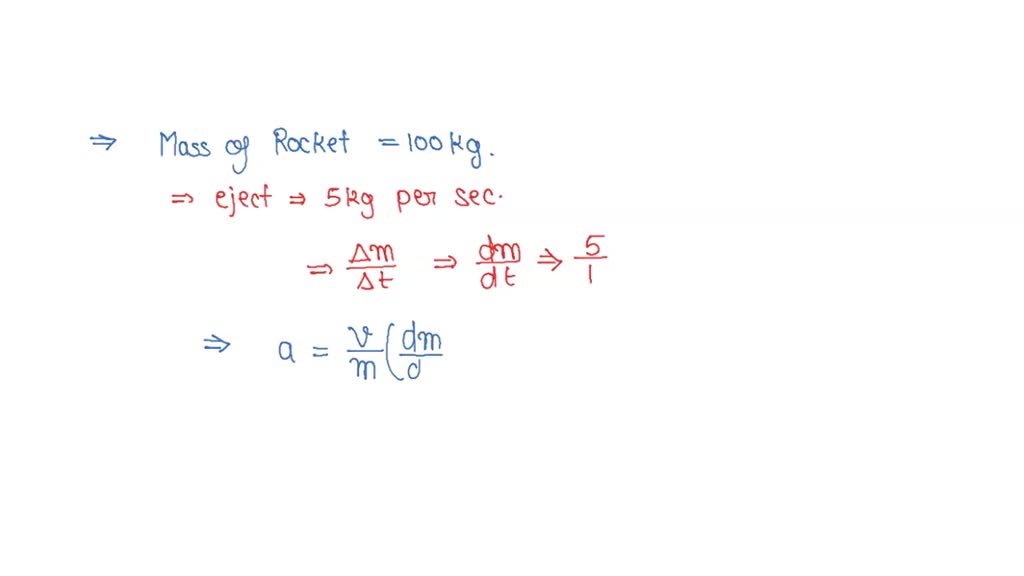 ⇒ Mass of Rocket = 100 kg.
⇒ eject ⇒ 5 kg per sec.
⇒ Δm/Δt ⇒ dm/dt ⇒ 5/1
⇒ a = v/m (dm/d